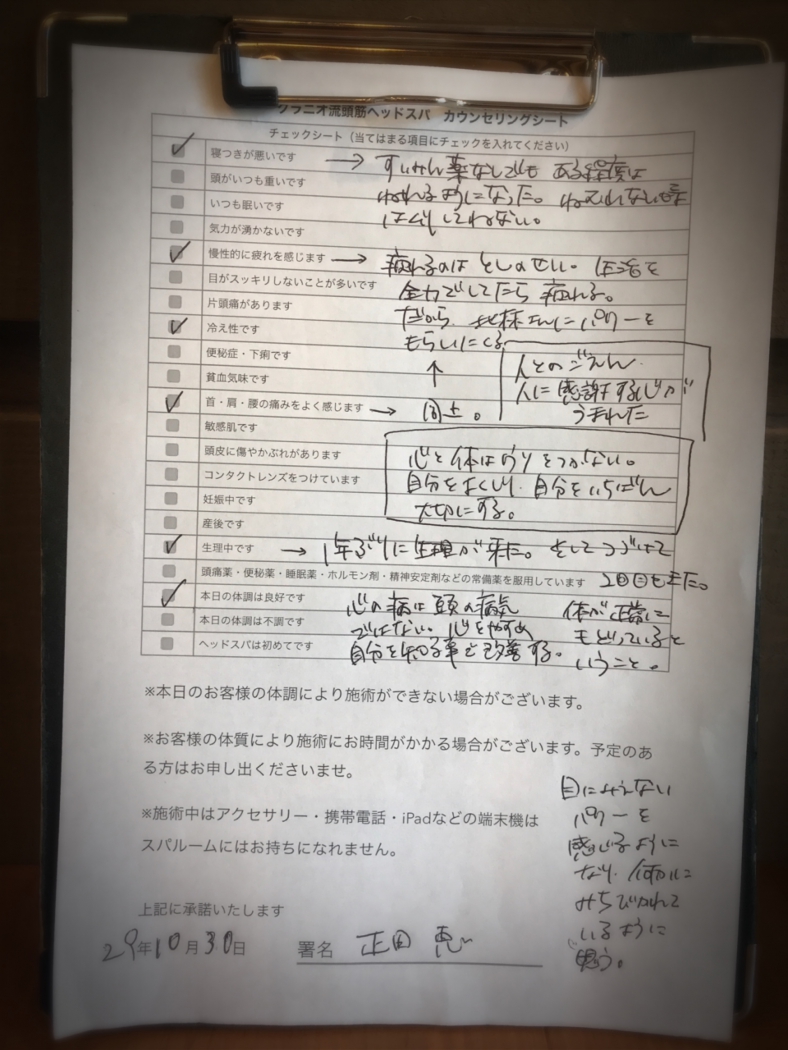 クラニオ流頭筋ヘッドスパ カウンセリングシート
チェックシート（当てはまる項目にチェックを入れてください）
寝つきが悪いです → すいみん薬なしでも ある程度は
頭がいつも重いです ねれるようになった。ねむれない時
いつも眠いです は
気力が湧かないです
慢性的に疲れを感じます → 疲れるのは としのせい。生活を
目がスッキリしないことが多いです 全力でしてたら 疲れる。
片頭痛があります だから、 さんにパワーを
冷え性です もらいにくる
便秘症・下痢です ↑ 人とのごえん
貧血気味です 人に感謝する心が
首・肩・腰の痛みをよく感じます → 同上。 うまれた
敏感肌です
頭皮に傷やかぶれがあります 心と体はウソをつかない。
コンタクトレンズをつけています 自分をよくしり、自分をいちばん
妊娠中です 大切にする。
産後です
生理中です → 1年ぶりに生理が来た。そしてつづけて
頭痛薬・便秘薬・睡眠薬・ホルモン剤・精神安定剤などの常備薬を服用しています 2回目も来た。
本日の体調は良好です 心の病は頭の病気 体が正常に
本日の体調は不調です ではない。心をやすめ もどっていると
ヘッドスパは初めてです 自分を知る事で改善する。 いうこと。
※本日のお客様の体調により施術ができない場合がございます。
※お客様の体質により施術にお時間がかかる場合がございます。予定のあ
る方はお申し出くださいませ。
※施術中はアクセサリー・携帯電話・iPadなどの端末機は
スパルームにはお持ちになれません。
目にみえない
パワーを
感じるように
なり、何かに
みちびかれて
いるように
思う。
上記に承諾いたします
29年10月30日 署名 正田 恵